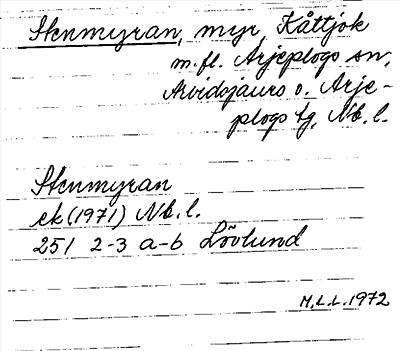 Stenmyran, myr, Kåttjok
m.fl. Arjeplogs sn,
Arvidsjaurs o. Arje-
plogs tg, Nb.l.
Stenmyran
ek (1971) Nb.l.
251 2-3 a-b Lövlund
M.L.L. 1972